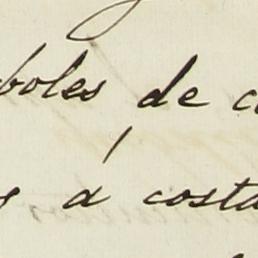 boles de c
á costa